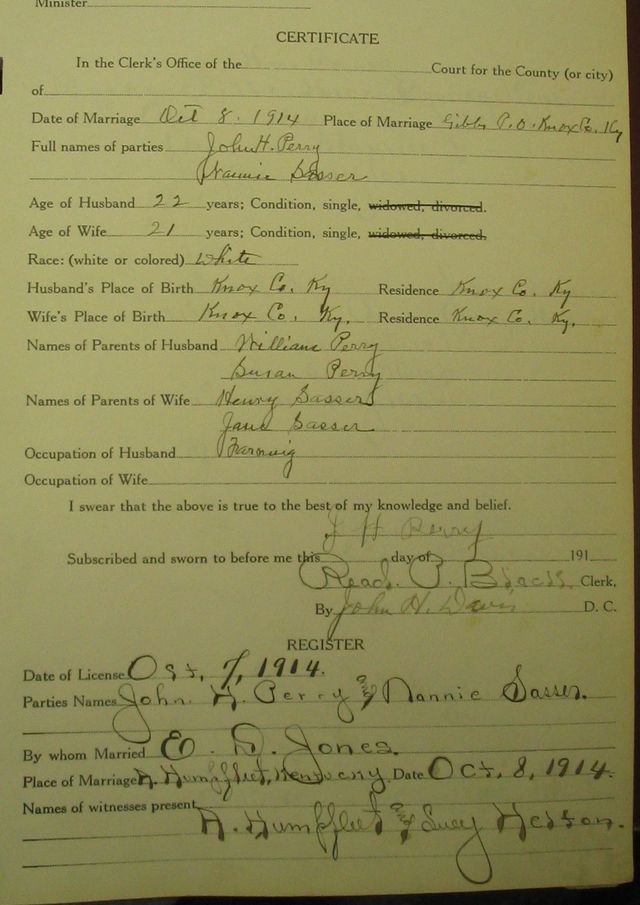 Minister
CERTIFICATE
In the Clerk's Office of the Court for the County (or city)
of
Date of Marriage Oct 8. 1914 Place of Marriage Gibbs P.O. Knox Co. Ky
Full names of parties John H. Perry
Nannie Sasser
Age of Husband 22 years; Condition, single, widowed, divorced.
Age of Wife 21 years; Condition, single, widowed, divorced.
Race: (white or colored) White
Husband's Place of Birth Knox Co. Ky Residence Knox Co. Ky
Wife's Place of Birth Knox Co. Ky. Residence Knox Co. Ky.
Names of Parents of Husband William Perry
Susan Perry
Names of Parents of Wife Henry Sasser
Jane Sasser
Occupation of Husband Farming
Occupation of Wife
I swear that the above is true to the best of my knowledge and belief.
J H Perry
Subscribed and sworn to before me this day of 191
Read. P. Black Clerk,
By John H. Davis D. C.
REGISTER
Date of License Oct, 7, 1914.
Parties Names John H. Perry & Nannie Sasser.
By whom Married E. D. Jones.
Place of Marriage Date Oct, 8, 1914.
Names of witnesses present
H. Humpfleet & Lucy